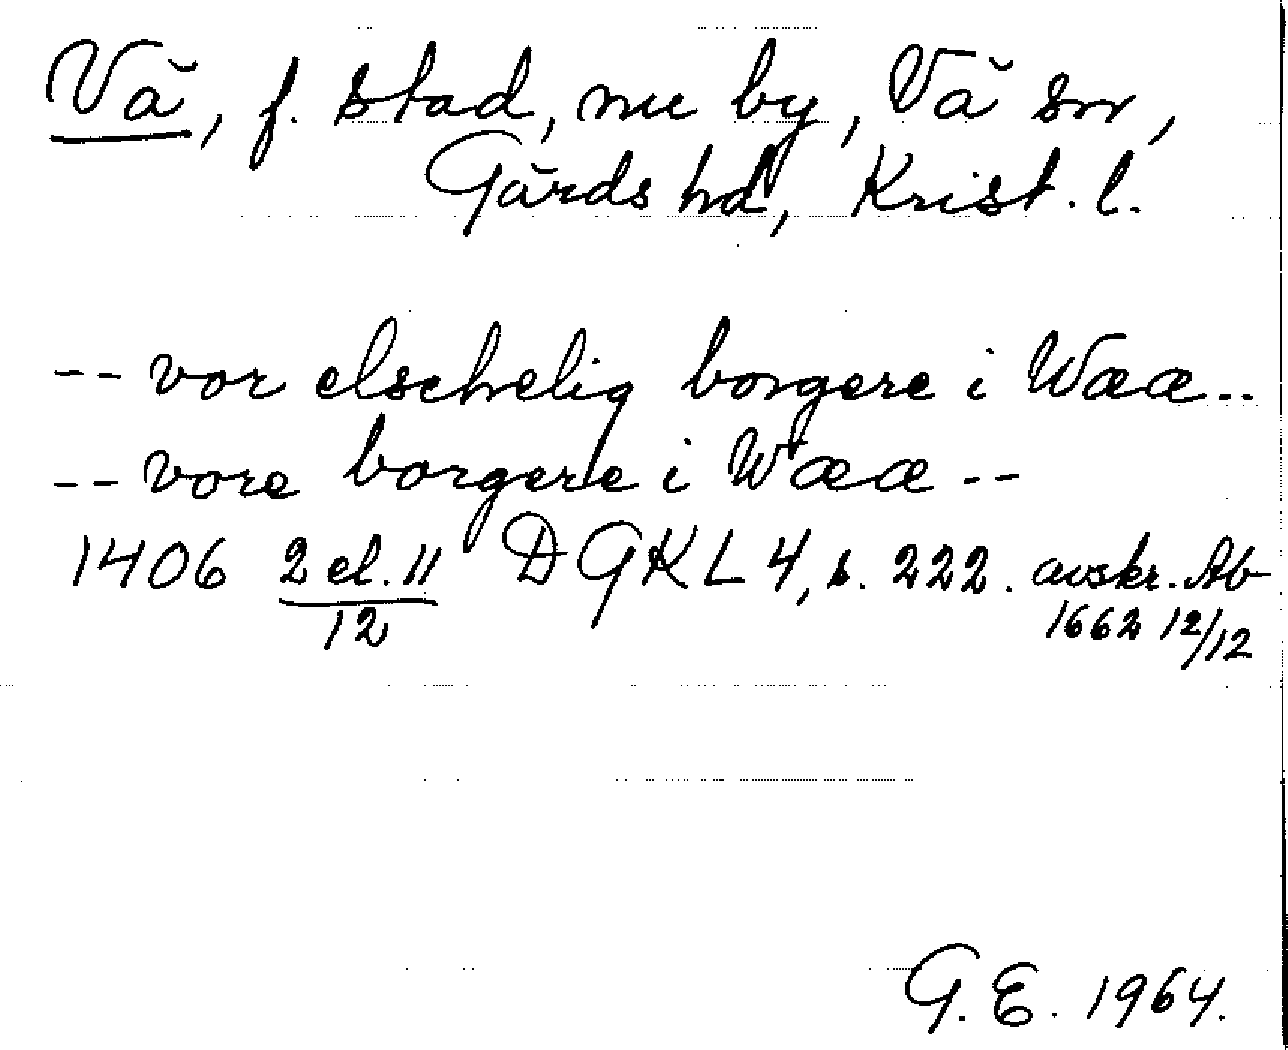 Vä, f. stad, nu by, Vä sn,
Gärds hd, Krist. l.
-- vor elschelig borgere i Wææ--
-- vore borgere i Wææ --
1406 2 el. 11/12 DGKL 4, s. 222. avskr. Ab
1662 12/12
G. E. 1964.